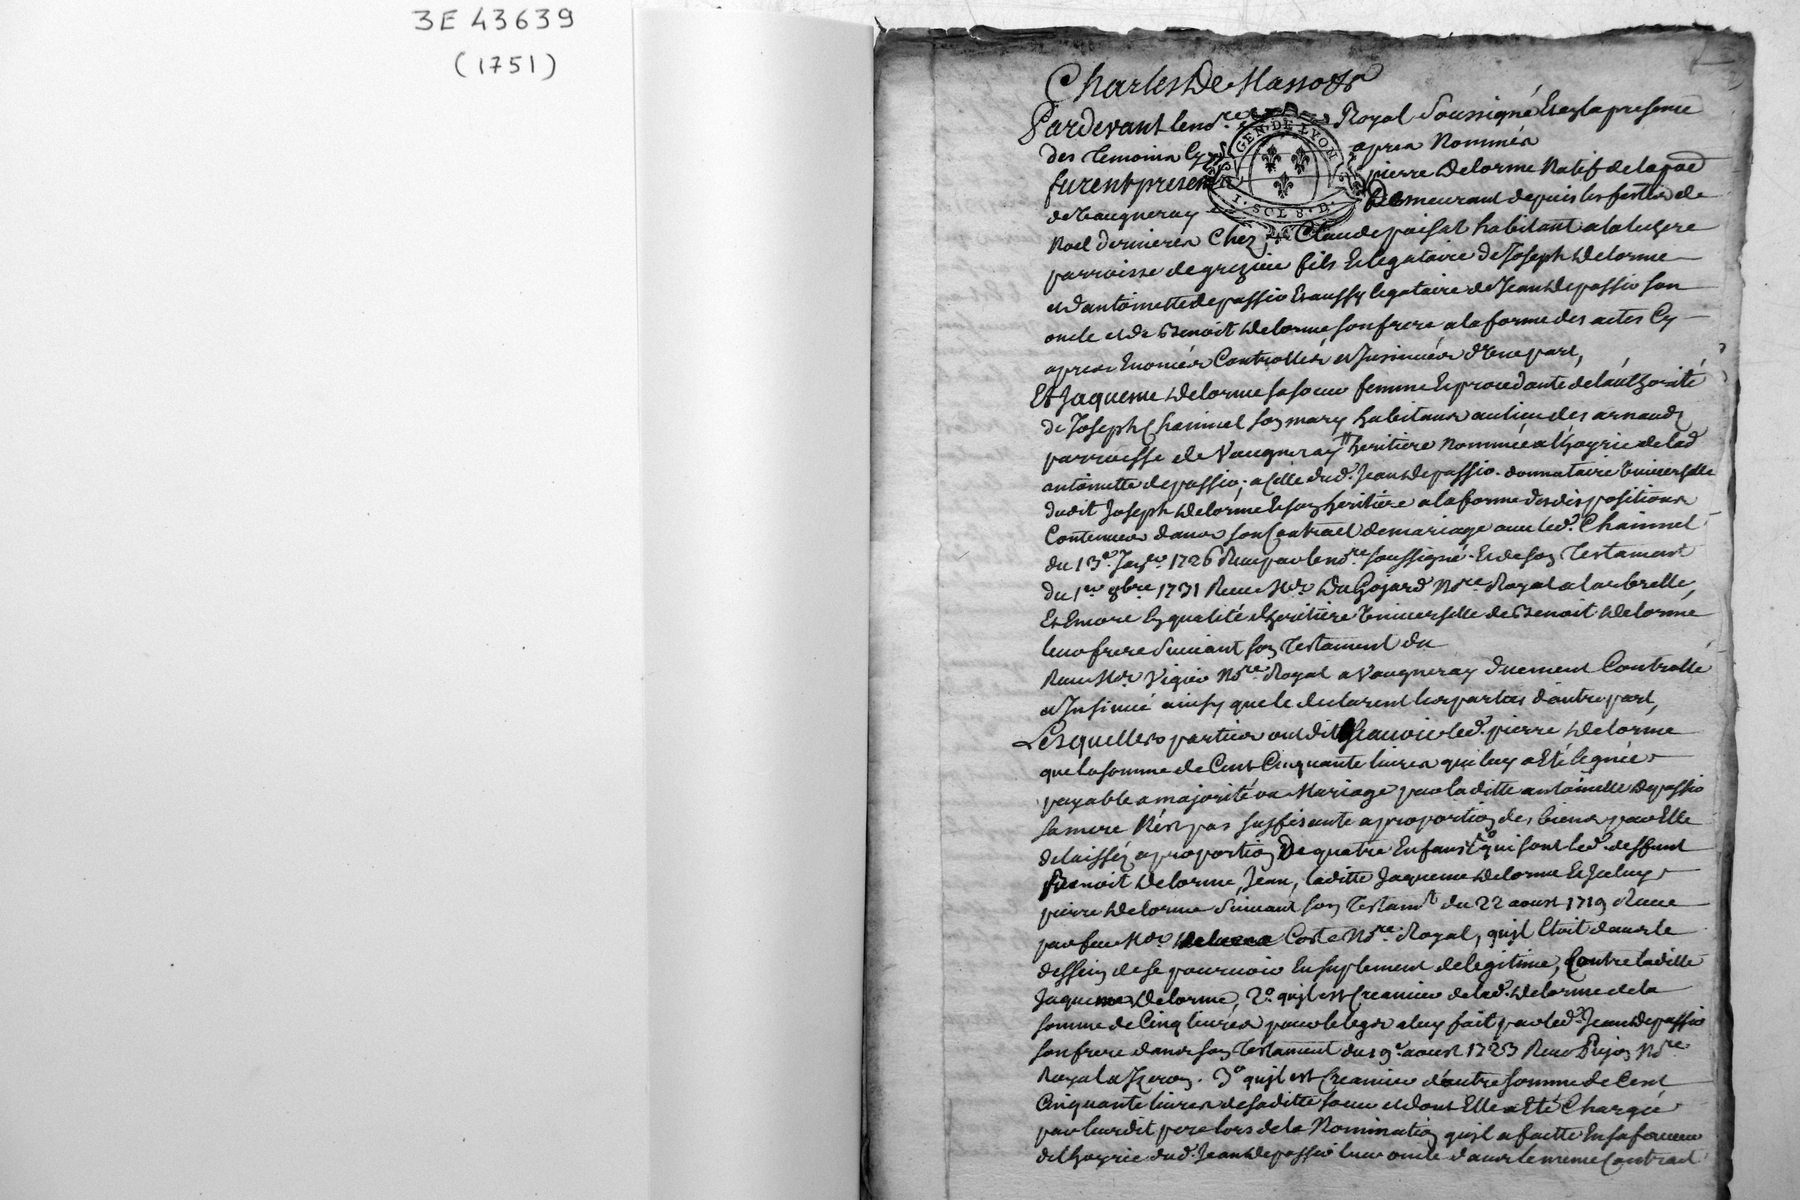 3E 43639
(1751)
Charles De Masso &a
Pardevant le no.re Royal soussigné Et en la presence
des temoins Cy apres Nommés
GEN·DE LYON
I·SOL 8·D·
furent present pierre Delorme Natif de la par
de Vaugneray Demeurant depuis les festes de
Noel dernieres Chez Claude paisat habitant a la
parroisse de grezieu fils Et legataire de Joseph Delorme
et d'antoinette depassio Et aussy legataire de Jean Depassio son
oncle et de Benoit Delorme son frere a la forme des actes Cy
apres Enoncés Controllés et Insinués d'Une part,
Et Jaqueme Delorme sa soeur femme Et procedante de l'authorité
de Joseph Chainnel son mary habitans au lieu des arnauds
parroisse de Vaugneray heritiere Nommée a l'hoyrie de lad
antoinette depassio, a Celle dud. Jean Depassio. donnataire Universelle
dudit Joseph Delorme Et son heritiere a la forme des dispositions
Contenues dans son Contract de mariage avec led. Chainnel
du 13e. 1726 Receu par le no.re soussigné. Et de son Testament
du 1er 8bre 1731 Receu Me. Royal a larbrelle,
Et Encore En qualité d'heritiere Universelle de Benoit Delorme
leur frere suivant son Testament du
Receu Me. Vigier No.re Royal a Vaugneray duement Controllé
et Insinué ainsy que le declarent les parties d'autre part,
Lesquelles parties ont dit Scavoir led. pierre Delorme
que la somme de Cent Cinquante livres qui luy a Eté leguée
payable a majorité ou Mariage par laditte antoinette Depassio
sa mere N'est pas suffisante a proportion des biens par Elle
delaissés a proportion De quatre Enfans qui sont led. deffunt
Benoit Delorme, Jean, laditte Jaqueme Delorme Et Iceluy
pierre Delorme suivant son Testam.t du 22 aoust 1719 Receu
par feu Me. Coste No.re Royal, qu'il Etoit dans le
dessein de se pourvoir En suplement de legitime, Contre laditte
Jaqueme Delorme, 2o. qu'il est Creancier de lad. Delorme de la
somme de Cinq livres pour le legs a luy fait par led. Jean Depassio
son frere dans son Testament du 19e. aoust 1723 Receu No.re
Royal a Izeron. 3o qu'il est Creancier d'autre somme de Cent
Cinquante livres de saditte soeur et dont Elle a Eté Chargée
par leurdit pere lors de la Nomination qu'il a faitte En sa faveur
de l'hoyrie dud. Jean Depassio leur oncle dans le meme Contract